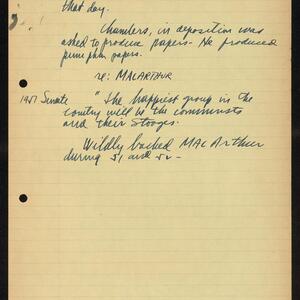 that day.
Chambers, in deposition was
asked to produce papers - He produced
pumpkin papers.
re: MACARTHUR
1951 Senate "The happiest group in the
country will be the communists
and their Stooges.
Wildly backed MAC Arthur
during 51 and 52 -